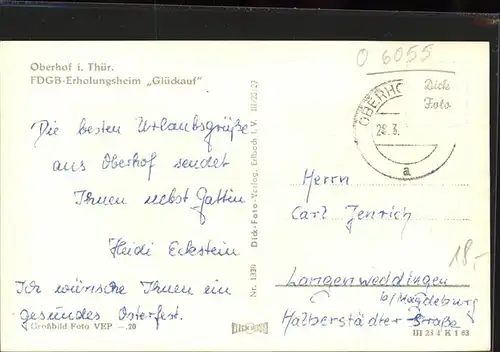 O 6055
Oberhof i. Thür.
FDGB-Erholungsheim „Glückauf"
Dick
Foto
OBERHO
28.3.
a
Die besten Urlaubsgrüße
aus Oberhof sendet
Ihnen nebst Gattin
Heidi Eckstein
Ich wünsche Ihnen ein
gesundes Osterfest.
Großbild Foto VEP —.20
Nr. 1329 Dick-Foto-Verlag, Erlbach i. V. III/20/27
Herrn
Carl Jenrich
18,-
Langenweddingen
b/Magdeburg
Halberstädter Straße
III 23 4 K 1 63